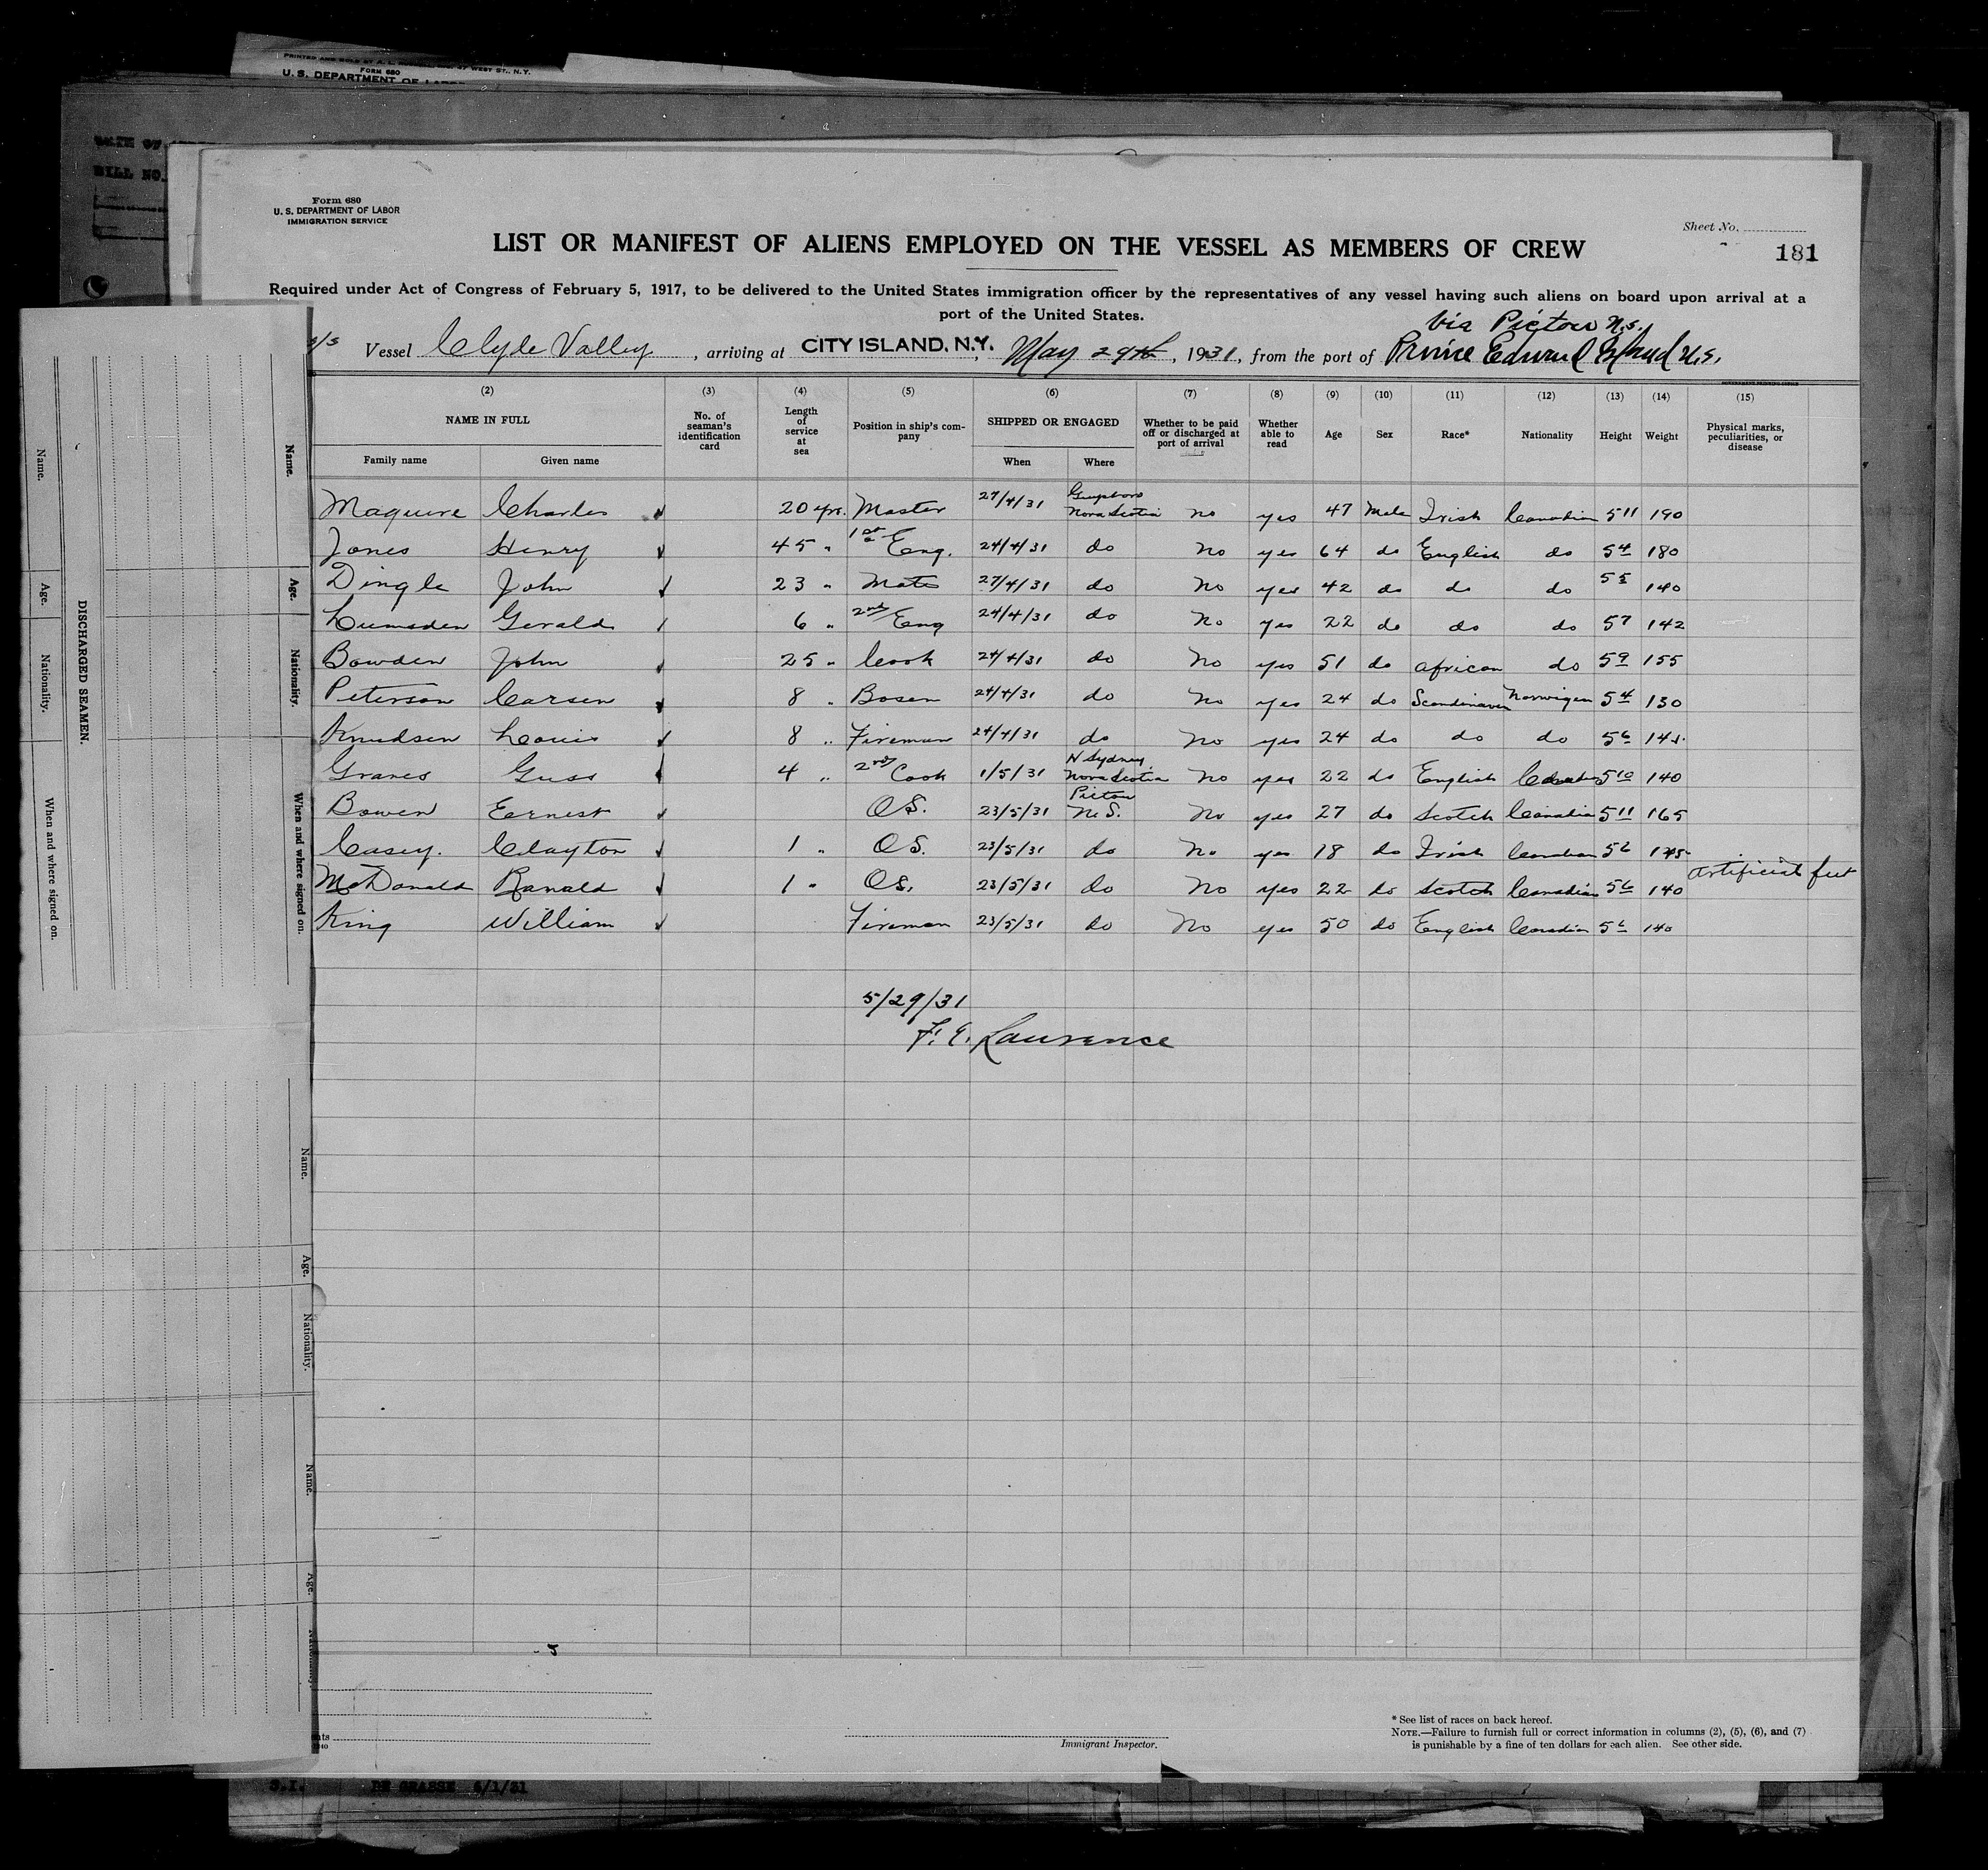 PRINTED AND SOLD BY WEST ST., N.Y.
FORM 680
U. S. DEPARTMENT OF LABOR
BILL NO.
Form 680
U. S. DEPARTMENT OF LABOR
IMMIGRATION SERVICE
Sheet No.
181
LIST OR MANIFEST OF ALIENS EMPLOYED ON THE VESSEL AS MEMBERS OF CREW
Required under Act of Congress of February 5, 1917, to be delivered to the United States immigration officer by the representatives of any vessel having such aliens on board upon arrival at a
port of the United States.
via Pictou N.S.
s/s Vessel Clyde Valley, arriving at CITY ISLAND, N.Y., May 29th, 1931, from the port of Prince Edward Island N.S.
(2) (3) (4) (5) (6) (7) (8) (9) (10) (11) (12) (13) (14) (15)
NAME IN FULL No. of seaman's identification card Length of service at sea Position in ship's company SHIPPED OR ENGAGED Whether to be paid off or discharged at port of arrival Whether able to read Age Sex Race* Nationality Height Weight Physical marks, peculiarities, or disease
Family name Given name When Where
Maguire Charles 20 yrs. Master 27/4/31 Guysboro Nova Scotia no yes 47 Male Irish Canadian 5 11 190
Jones Henry 45 " 1st Eng. 24/4/31 do No yes 64 do English do 5 4 180
Dingle John 23 " Mate 27/4/31 do No yes 42 do do do 5 5 140
Lumsden Gerald 6 " 2nd Eng 24/4/31 do No yes 22 do do do 5 7 142
Bowden John 25 " Cook 24/4/31 do No yes 51 do african do 5 9 155
Peterson Carsen 8 " Bosen 24/4/31 do No yes 24 do Scandinaven Norwigen 5 4 130
Knudsen Louis 8 " Fireman 24/4/31 do No yes 24 do do do 5 6 145
Graves Guss 4 " 2nd Cook 1/5/31 N Sydney Nova Scotia No yes 22 do English Canadian 5 10 140
Bowen Ernest OS. 23/5/31 Pictou N.S. No yes 27 do Scotch Canadian 5 11 165
Casey. Clayton 1 " OS. 23/5/31 do No yes 18 do Irish Canadian 5 6 145
McDonald Ranald 1 " OS. 23/5/31 do No yes 22 do Scotch Canadian 5 6 140 artificial feet
King William Fireman 23/5/31 do No yes 50 do English Canadian 5 6 140
5/29/31
F. E. Laurence
DISCHARGED SEAMEN.
Name.
Age.
Nationality.
When and where signed on.
Name.
Age.
Nationality.
When and where signed on.
Name.
Age.
Nationality.
Name.
Age.
Immigrant Inspector.
* See list of races on back hereof.
NOTE.—Failure to furnish full or correct information in columns (2), (5), (6), and (7)
is punishable by a fine of ten dollars for each alien. See other side.
S.I. DE GRASSE 6/1/31